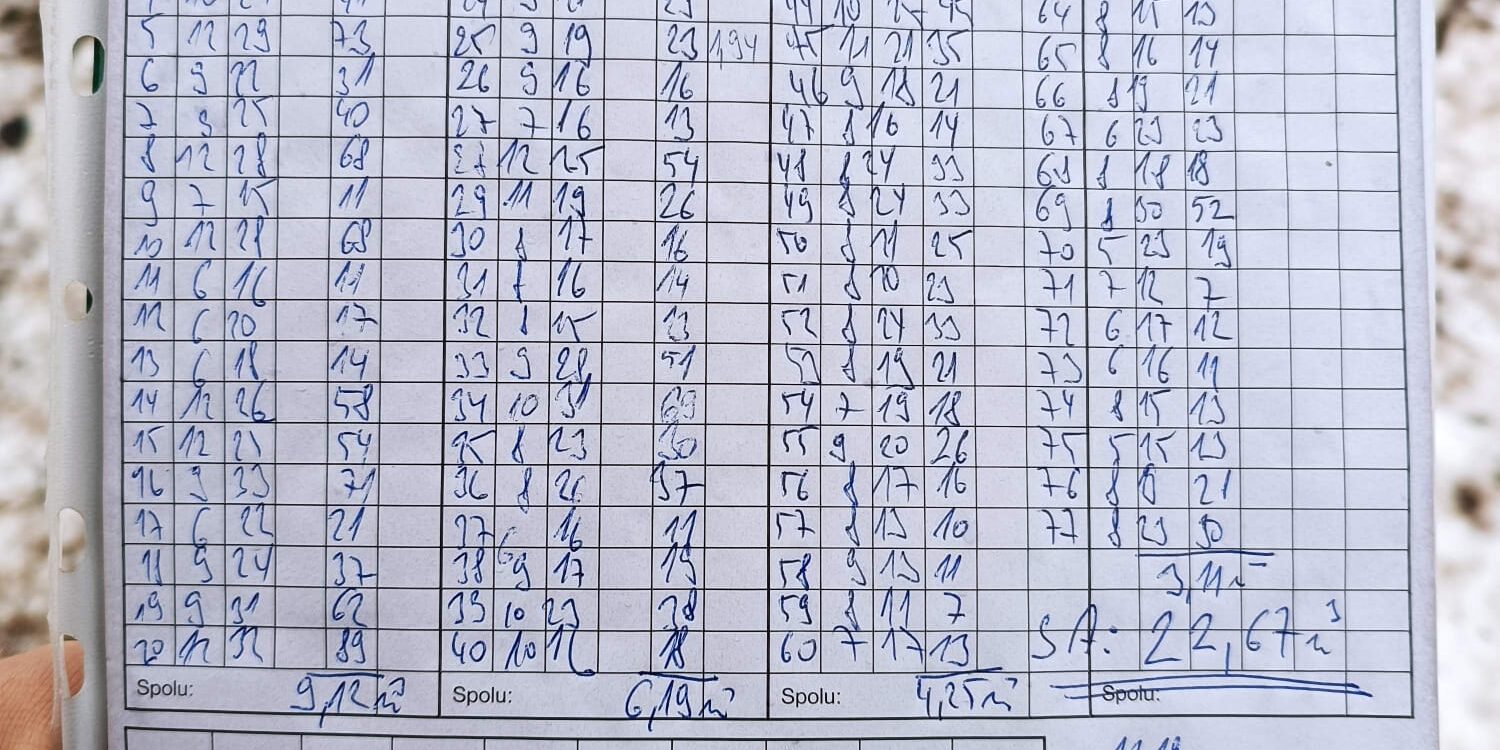 5 12 29 73 25 9 19 23 1,94 45 11 21 35 65 8 16 14
6 9 22 31 26 9 16 16 46 9 18 21 66 8 19 21
7 9 25 40 27 7 16 13 47 8 16 14 67 6 23 23
8 12 28 68 28 12 25 54 48 8 24 33 68 8 18 18
9 7 15 11 29 11 19 26 49 8 24 33 69 8 30 52
10 12 28 68 30 8 17 16 50 8 21 25 70 5 23 19
11 6 16 11 31 16 14 51 8 20 23 71 7 12 7
12 6 20 17 32 8 15 13 52 8 24 33 72 6 17 12
13 6 18 14 33 9 28 51 53 8 19 21 73 6 16 11
14 12 26 58 34 10 31 69 54 7 19 18 74 8 15 13
15 12 25 54 35 8 23 30 55 9 20 26 75 5 15 13
16 9 33 71 36 8 26 37 56 8 17 16 76 8 21
17 6 22 21 37 6 16 11 57 8 13 10 77 8 23 30
18 9 24 37 38 9 17 19 58 9 13 11 3,11m³
19 9 31 62 39 10 23 38 59 8 11 7
20 12 32 89 40 10 16 18 60 7 17 13 SA: 22,67m³
Spolu: 9,12m³ Spolu: 6,19m³ Spolu: 4,25m³ Spolu: